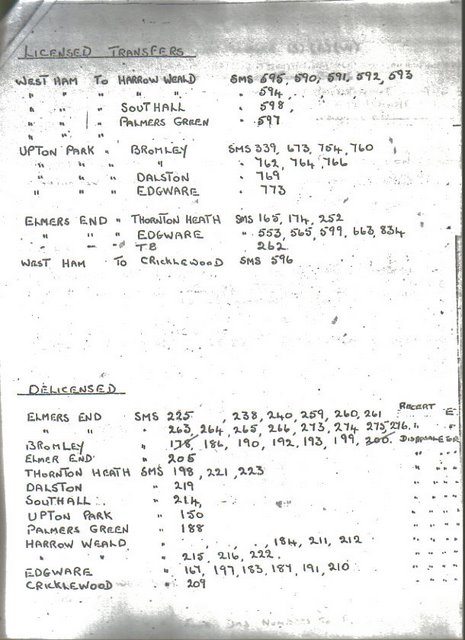 LICENSED TRANSFERS
WEST HAM TO HARROW WEALD SMS 595, 590, 591, 592, 593
" " " " " " 594
" " " SOUTHALL " 598,
" " " PALMERS GREEN " 597
" "
UPTON PARK " BROMLEY SMS 339, 673, 754, 760
" " " " " 762, 764, 766
" " " DALSTON " 769
" " " EDGWARE " 773
ELMERS END " THORNTON HEATH SMS 165, 174, 252
" " " EDGWARE " 553, 565, 599, 663, 834
" " " TB 262
WEST HAM TO CRICKLEWOOD SMS 596
DELICENSED
ELMERS END SMS 225, 238, 240, 259, 260, 261 RECERT E
" " " 263, 264, 265, 266, 273, 274 275 276. " "
BROMLEY " 178, 186, 190, 192, 193, 199, 200. DISPOSAL
ELMER END " 205 " "
THORNTON HEATH SMS 198, 221, 223 " "
DALSTON " 219 " "
SOUTHALL . " 214, " "
UPTON PARK " 150 " "
PALMERS GREEN " 188 " "
HARROW WEALD 184, 211, 212 " "
" " 215, 216, 222 " "
EDGWARE " 167, 197, 183, 187, 191, 210 " "
CRICKLEWOOD " 209 " "